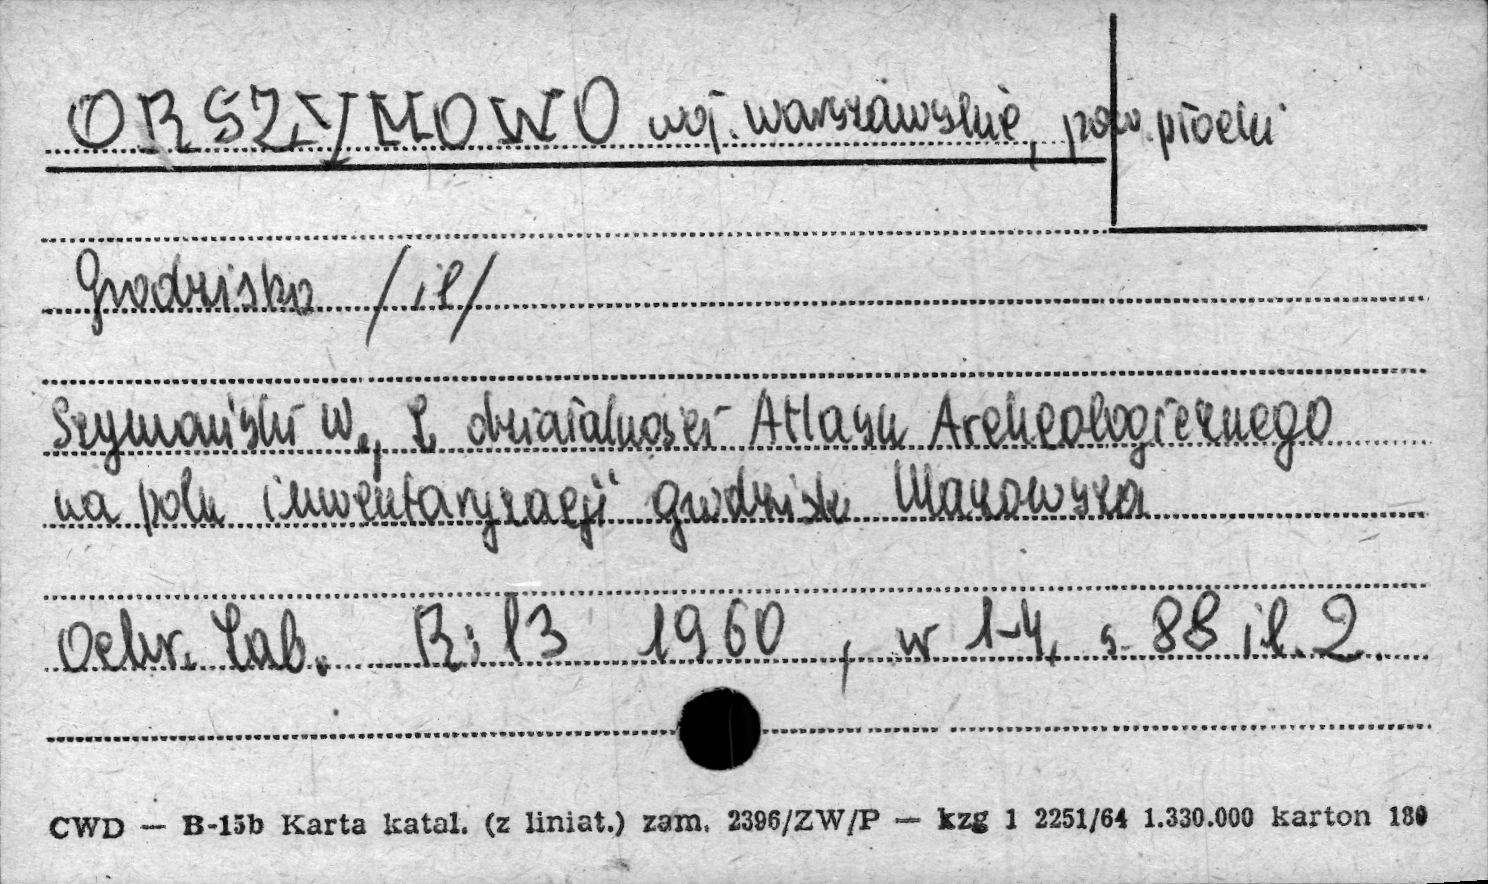 ORSZYMOWO woj. warszawskie, pow. płocki
Grodzisko /il/
Szymański W., Z działalności Atlasu Archeologicznego
na polu inwentaryzacji grodzisk Mazowsza
Ochr. Zab. R: 13 1960, nr 1-4, s. 88 il. 2.
CWD — B-15b Karta katal. (z liniat.) zam. 2396/ZW/P — kzg 1 2251/64 1.330.000 karton 180